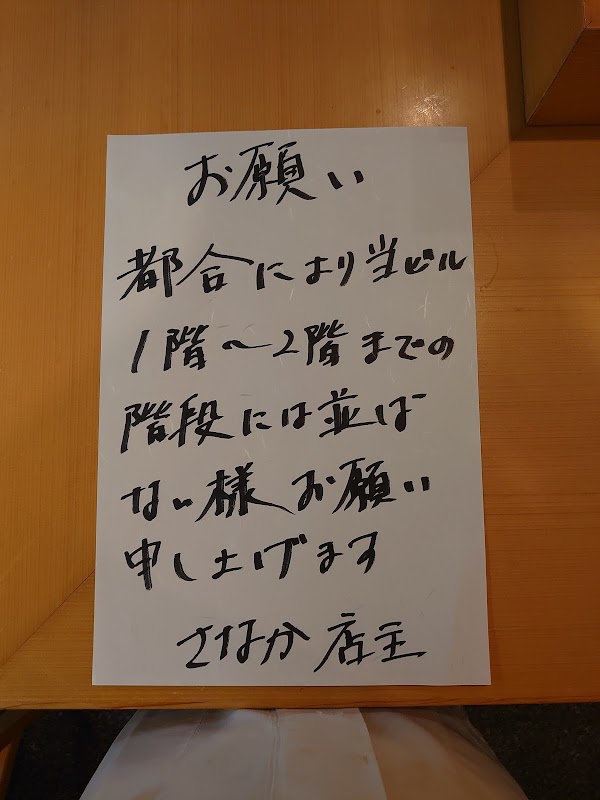 お願い
都合により当ビル
1階～2階までの
階段には並ば
ない様お願い
申し上げます
さなか 店主